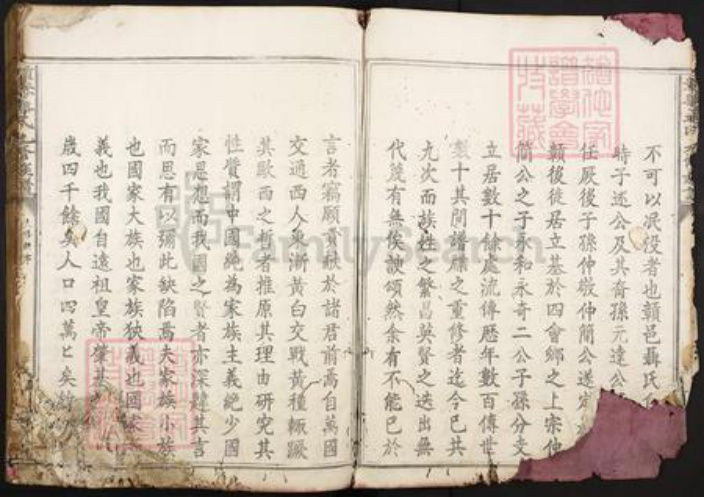 不可以泯役者也贛邑聶氏
時子述公及其裔孫元達公
任厥後子孫仲敬仲簡公遂定
贛後徙居立基於四會鄉之上宗仲
簡公之子永和永奇二公子孫分支
立居數十餘處流傳歷年數百傳世
數十其間譜牒之重修者迄今已共
九次而族姓之繁昌英賢之迭出無
代蔑有無俟諛頌然余有不能已於
言者竊願貢獻於諸君前焉自萬國
交通西人東漸黃白交戰黃種輒蹶
其歐西之哲者推原其理由研究其
性質謂中國純為家族主義絶少國
家思想而我國之賢者亦深韙其言
而思有以彌此缺陷焉夫家族小族
也國家大族也家族狹義也國
義也我國自遠祖皇帝肇基
歲四千餘矣人口四萬七矣
FamilySearch